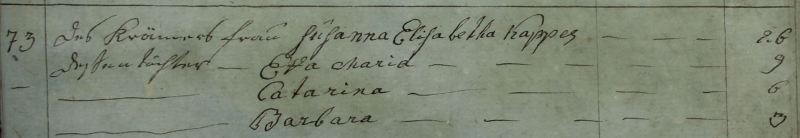 73 des Krämers frau Susanna Elisabetha Kappes — — — 26
dessen töchter — Eva Maria — — — — 9
— — Catarina — — — — 6
— Barbara — — — — 3